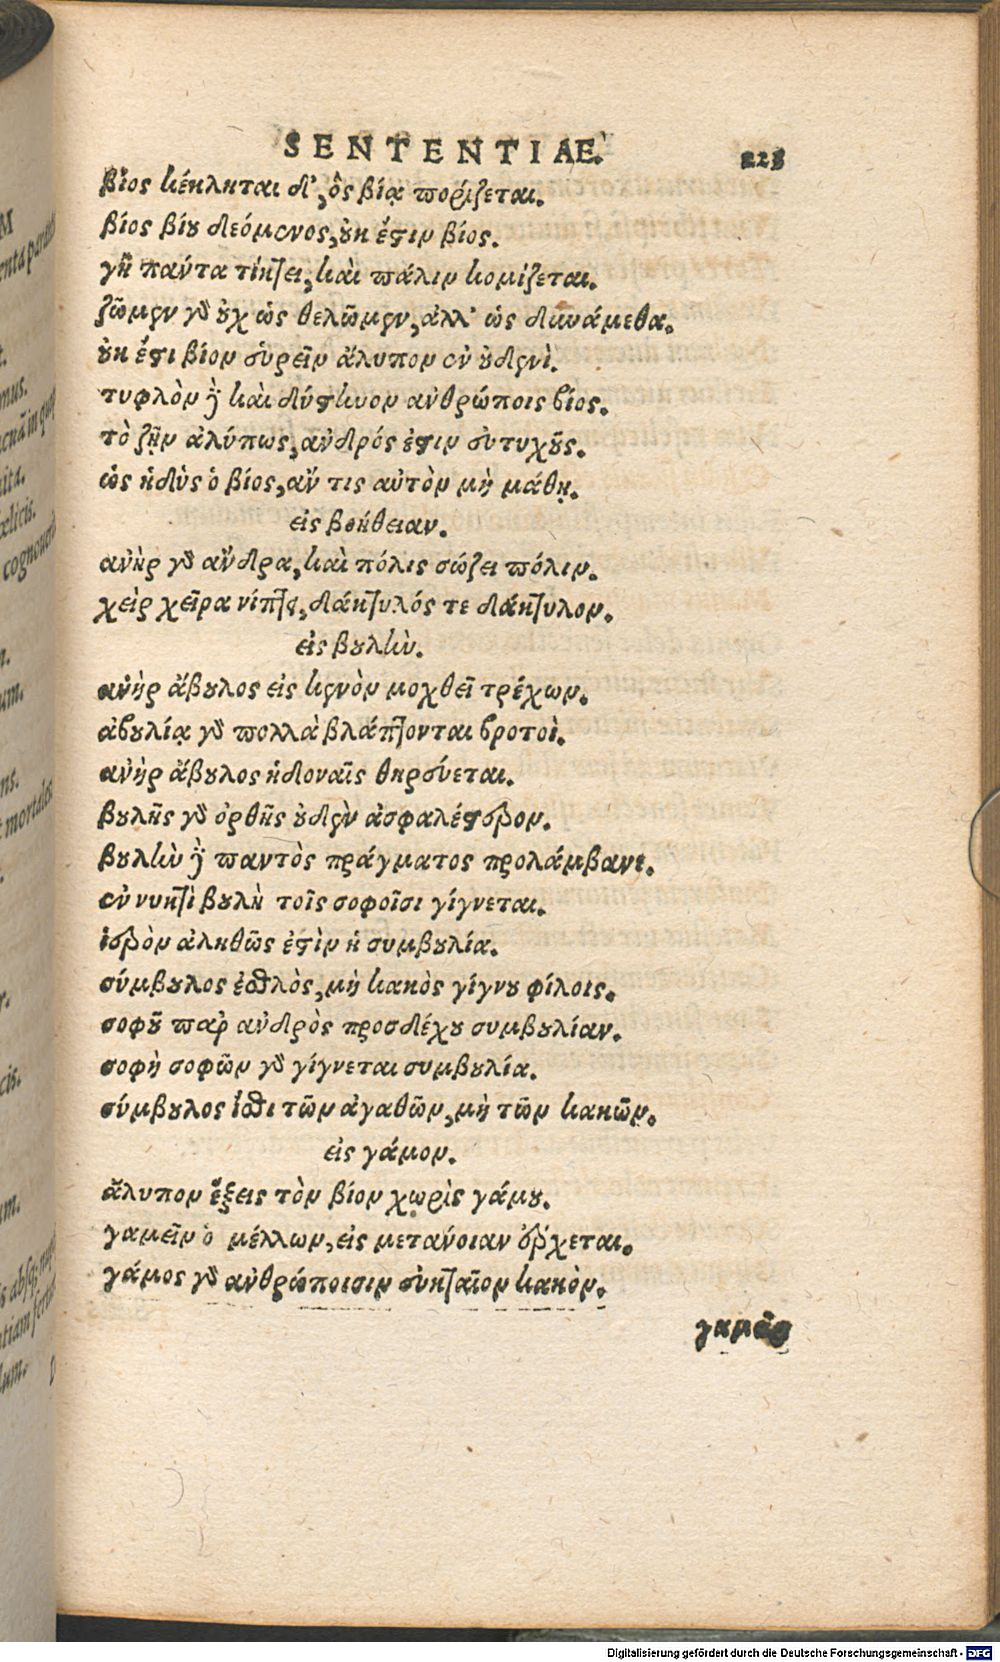 SENTENTIAE. 223
βίος κέκληται δ', ὃς βίᾳ πορίζεται.
βίος βίου δεόμενος, οὐκ ἔστιν βίος.
γῆ πάντα τίκτει, καὶ πάλιν κομίζεται.
ζῶμεν γὰρ οὐχ ὡς θελῶμεν, ἀλλ' ὡς δυνάμεθα.
οὐκ ἔστι βίον εὑρεῖν ἄλυπον ἐν οὐδενὶ.
τυφλὸν γε καὶ δύστηνον ἀνθρώποις βίος.
τὸ ζῇν ἀλύπως, ἀνδρός ἐστιν εὐτυχοῦς.
ὡς ἡδὺς ὁ βίος, ἄν τις αὐτὸν μὴ μάθῃ.
εἰς βοήθειαν.
ἀνὴρ γὰρ ἄνδρα, καὶ πόλις σώζει πόλιν.
χεὶρ χεῖρα νίπτει, δάκτυλός τε δάκτυλον.
εἰς βουλὴν.
ἀνὴρ ἄβουλος εἰς κενὸν μοχθεῖ τρέχων.
ἀβουλίᾳ γὰρ πολλὰ βλάπτονται βροτοὶ.
ἀνὴρ ἄβουλος ἡδοναῖς θηρεύεται.
βουλῆς γὰρ ὀρθῆς οὐδὲν ἀσφαλέστερον.
βουλὴν γε παντὸς πράγματος προλάμβανε.
ἐν νυκτὶ βουλὴ τοῖς σοφοῖσι γίγνεται.
ἱερὸν ἀληθῶς ἐστὶν ἡ συμβουλία.
σύμβουλος ἐσθλὸς, μὴ κακὸς γίγνου φίλοις.
σοφοῦ παρ' ἀνδρὸς προσδέχου συμβουλίαν.
σοφὴ σοφῶν γὰρ γίγνεται συμβουλία.
σύμβουλος ἴσθι τῶν ἀγαθῶν, μὴ τῶν κακῶν.
εἰς γάμον.
ἄλυπον ἕξεις τὸν βίον χωρὶς γάμου.
γαμεῖν ὁ μέλλων, εἰς μετάνοιαν ἔρχεται.
γάμος γὰρ ἀνθρώποισιν εὐκταῖον κακὸν.
Digitalisierung gefördert durch die Deutsche Forschungsgemeinschaft - DFG